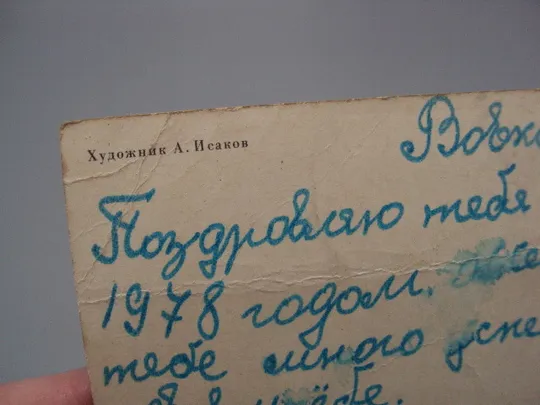 Художник А. Исаков
Вовк
Поздровляю тебя
1978 годом.
тебе много успе
учёбе.